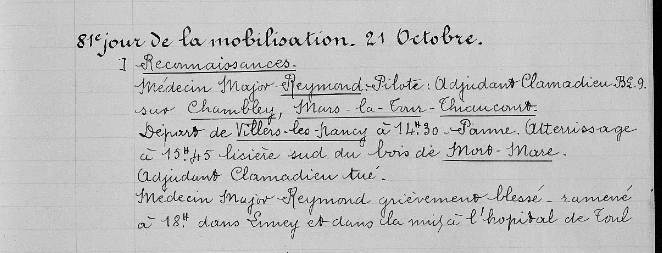 81e jour de la mobilisation. 21 Octobre.
I Reconnaissances.
Médecin Major Reymond - Pilote : Adjudant Clamadieu - Bl. 9.
sur Chambley, Mars-la-Tour-Thiaucourt.
Départ de Villers-les-Nancy à 14H30 - Panne. Atterrissage
à 15H45 lisière sud du bois de Mort-Mare.
Adjudant Clamadieu tué.
Médecin Major Reymond grièvement blessé - ramené
à 18H dans Limey et dans la nuit à l'hopital de Toul